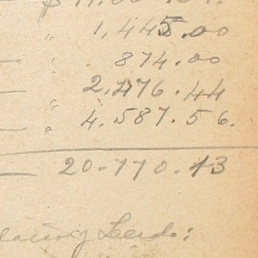 1,445.00
874.00
2.476.44
4.587.56.
20-770.13